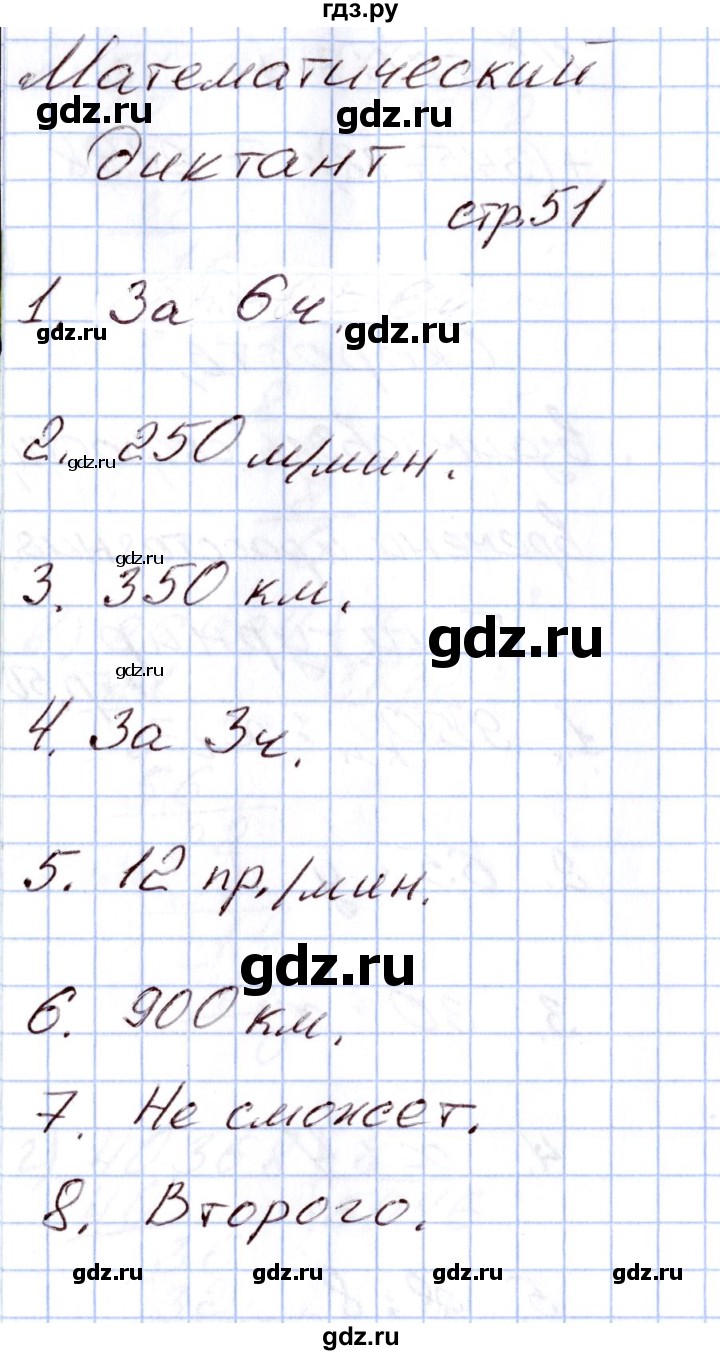 гдз.ру
Математический
gdz.ru gdz.ru
диктант
стр.51
1. За 6ч.
gdz.ru gdz.ru
2. 250 м/мин.
gdz.ru
gdz.ru
3. 350 км.
gdz.ru
gdz.ru
4. За 3ч.
5. 12 пр./мин.
gdz.ru
6. 900 км.
7. Не сможет.
8. Второго.
gdz.ru gdz.ru gdz.ru gdz.ru
gdz.ru